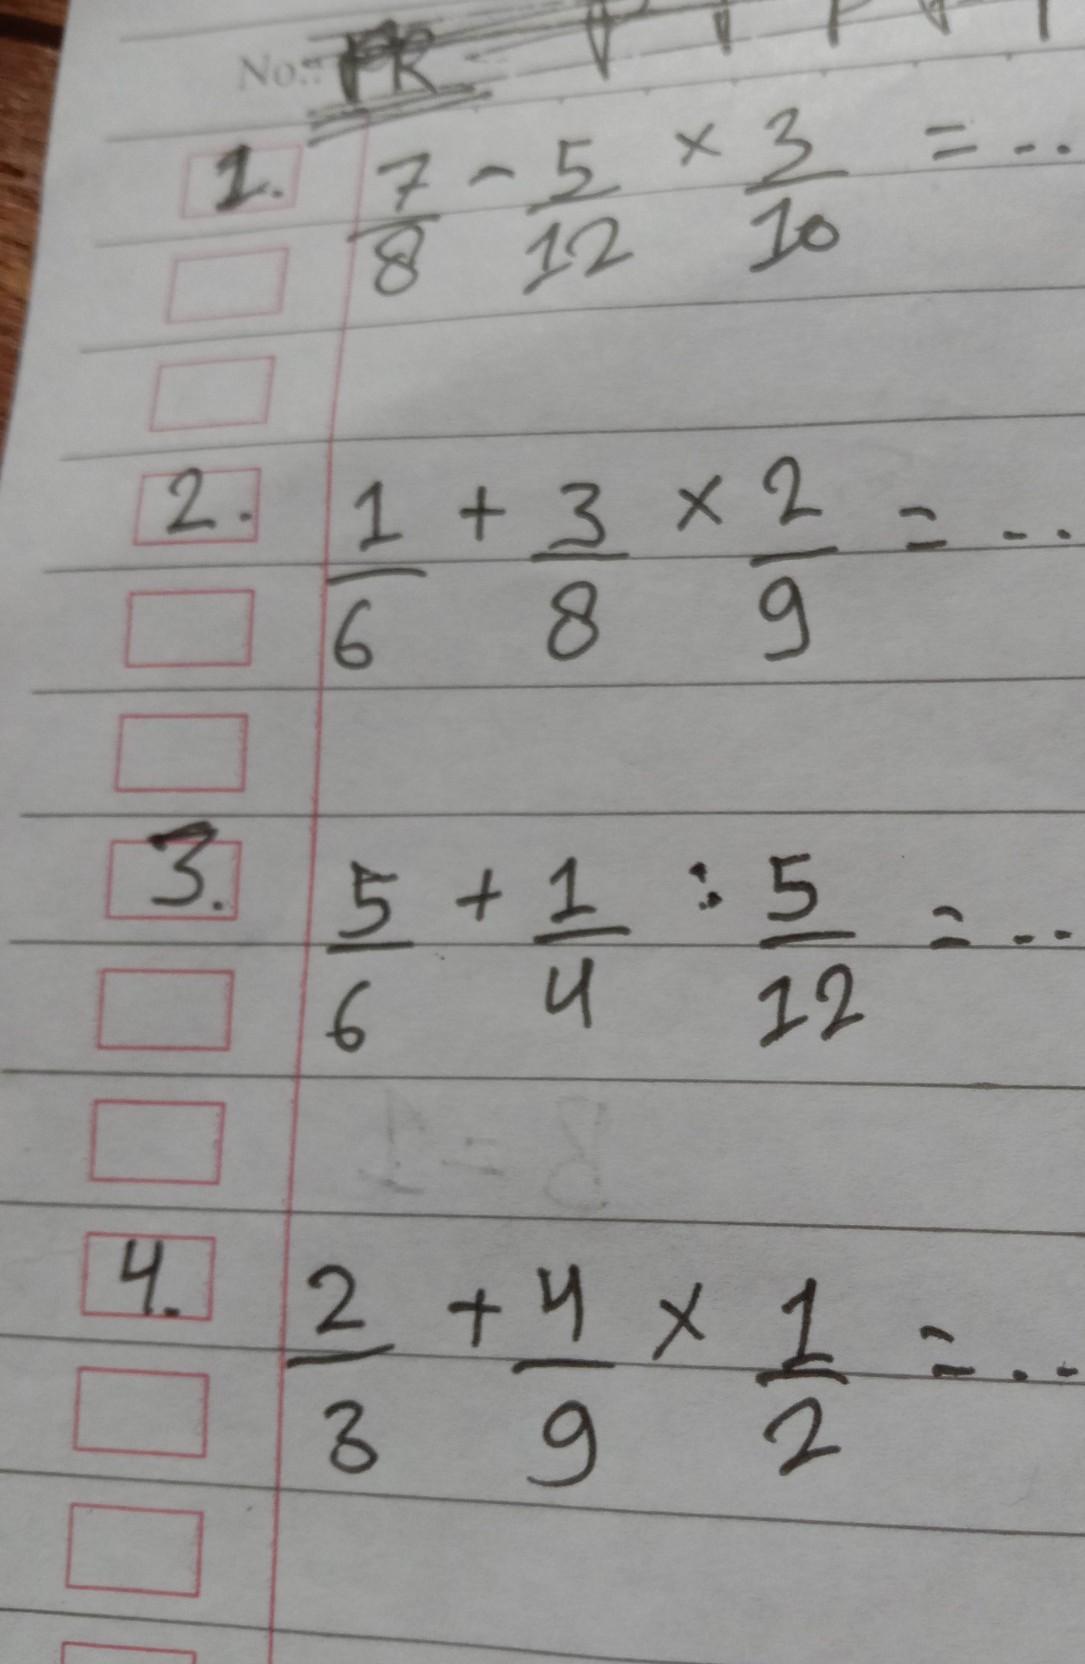 No.: PR
1. 7/8 - 5/12 × 3/10 = ...
2. 1/6 + 3/8 × 2/9 = ...
3. 5/6 + 1/4 : 5/12 = ...
4. 2/3 + 4/9 × 1/2 = ...